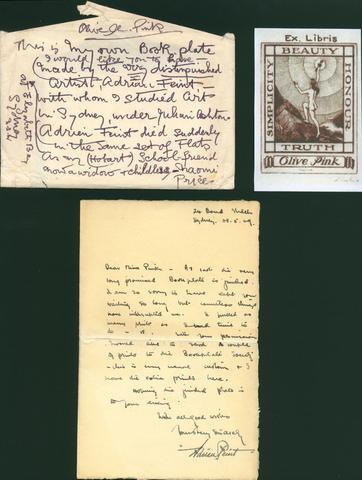 Olive M. Pink
This is my own Book plate
I would like you to have
(made by the very distinguished
Artist Adrian Feint
with whom I studied Art
in Sydney, under Julian Ashton
Adrien Feint died suddenly
in the same set of Flats
as my (Hobart) School friend
now a widow & childless Naomi
Price.
at Elizabeth Bay
Sydney
Ex. Libris
BEAUTY
SIMPLICITY
HONOUR
TRUTH
Olive Pink
24 Bond Street
Sydney. 28.5.29.
Dear Miss Pink - At last the very
long promised Bookplate is finished.
I am so sorry to have kept you
waiting so long but countless things
have interrupted me. I pulled as
many prints as I had time to
do - With your permission
I would like to send a couple
of prints to the Bookplate Society
- this is my usual custom & I
have the extra prints here.
Hoping the finished plate is
to your liking
With all good wishes
Yours very sincerely
Adrian Feint